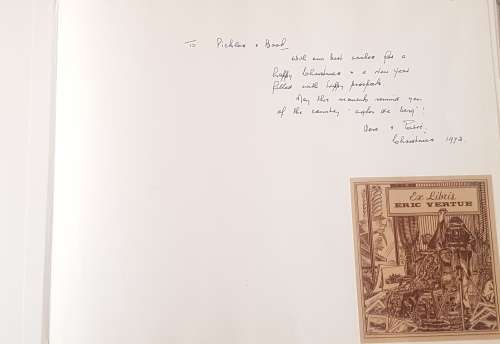 To Pickles &
With our best wishes for a
happy Christmas & a new year
filled with happy prospects.
May this memento remind you
of the country
Vera &
Christmas 1973.
Ex Libris
ERIC VERTUE